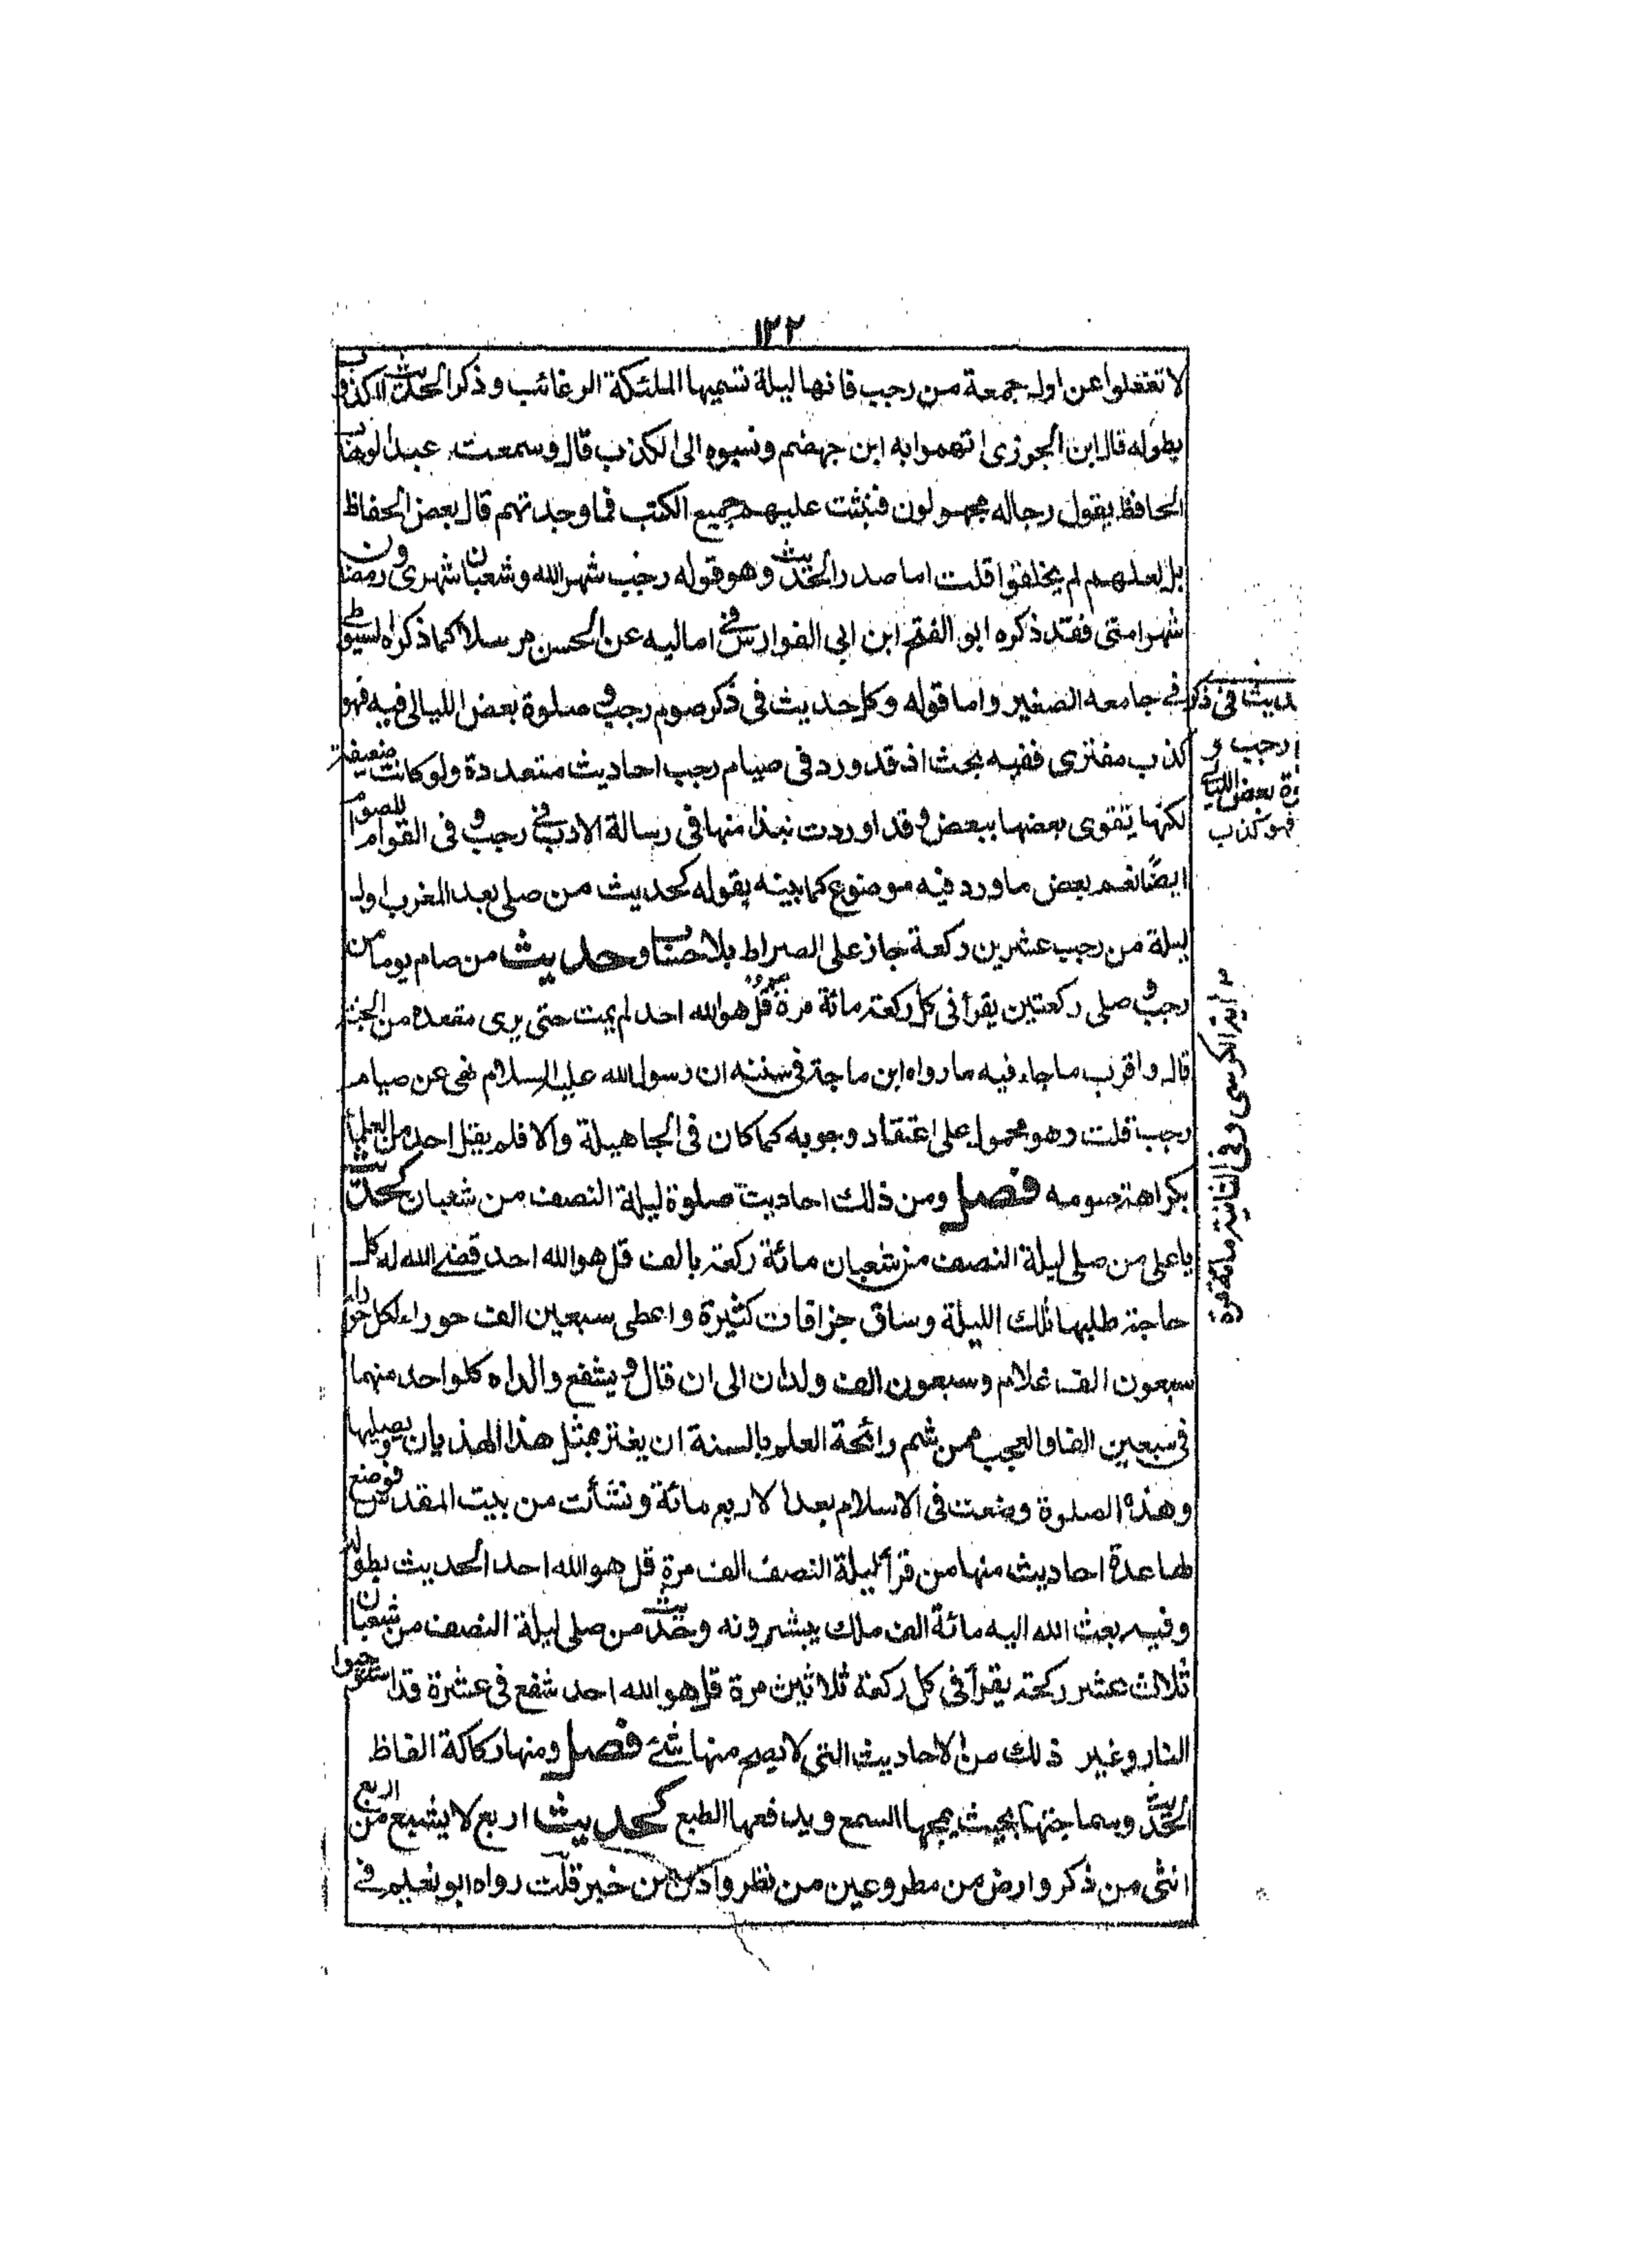 ١٢٢
لا تغفلوا عن اول جمعة من رجب فانها ليلة تسميها الملئكة الرغائب وذكر الحديث المكذوب
بطوله قال ابن الجوزى اتهموا به ابن جهضم ونسبوه الى الكذب قال وسمعت عبد الوهاب
الحافظ يقول رجاله مجهولون فتشت عليهم جميع الكتب فما وجدتهم قال بعض الحفاظ
بل لعلهم لم يخلقوا قلت اما صدر الحديث وهو قوله رجب شهر الله وشعبان شهرى ورمضان
شهر امتى فقد ذكره ابو الفتح ابن ابى الفوارس فى اماليه عن الحسن مرسلا كما ذكراه السيوطى
فى جامعه الصغير واما قوله وكل حديث فى ذكر صوم رجب و صلوة بعض الليالى فيه فهو
كذب مفترى ففيه بحث اذ قد ورد فى صيام رجب احاديث متعددة ولو كانت ضعيفة
لكنها يتقوى بعضها ببعض وقد اوردت نبذا منها فى رسالة الادب فى رجب و فى القوام للصوام
ايضًا نعم بعض ما ورد فيه موضوع كما بينه بقوله كحديث من صلى بعد المغرب اول
ليلة من رجب عشرين ركعة جاز على الصراط بلا حساب وحديث من صام يوما من
رجب و صلى ركعتين يقرأ فى كل ركعة مائة مرة قل هو الله احد لم يمت حتى يرى مقعده من الجنة
قال واقرب ما جاء فيه ما رواه ابن ماجة فى سننه ان رسول الله عليه السلام نهى عن صيام
رجب قلت وهو محمول على اعتقاد وجوبه كما كان فى الجاهيلة والا فلم يقل احد من العلماء
بكراهة صومه فصل ومن ذلك احاديث صلوة ليلة النصف من شعبان كحديث
يا على من صلى ليلة النصف من شعبان مائة ركعة بالف قل هو الله احد قضى الله له كل
حاجة طلبها تلك الليلة وساق جزافات كثيرة واعطى سبعين الف حوراء لكل حوراء
سبعون الف غلام وسبعون الف ولدان الى ان قال ويشفع والداه كلواحد منهما
فى سبعين الفا والعجب ممن شم رائحة العلم بالسنة ان يغتر بمثل هذا الهذيان ويصليها
وهذه الصلوة وضعت فى الاسلام بعد الاربع مائة ونشأت من بيت المقدس فوضع
لها عدة احاديث منها من قرأ ليلة النصف الف مرة قل هو الله احد الحديث بطوله
وفيه بعث الله اليه مائة الف ملك يبشرونه وحديث من صلى ليلة النصف من شعبان
ثلاث عشر ركعة يقرأ فى كل ركعة ثلاثين مرة قل هو الله احد شفع فى عشرة قد استوجبوا
النار وغير ذلك من الاحاديث التى لا يصح منها شئ فصل ومنها ركاكة الفاظ
الحديث وسماجتها بحيث يمجها السمع ويدفعها الطبع كحديث اربع لا يشبع من اربع
انثى من ذكر وارض من مطر وعين من نظر واذن من خبر قلت رواه ابو نعيم فى
ديث فى ذكر
رجب و
وة بعض الليالى
فهو كذب
أية الكرسى وفى الثانية مائة مرة